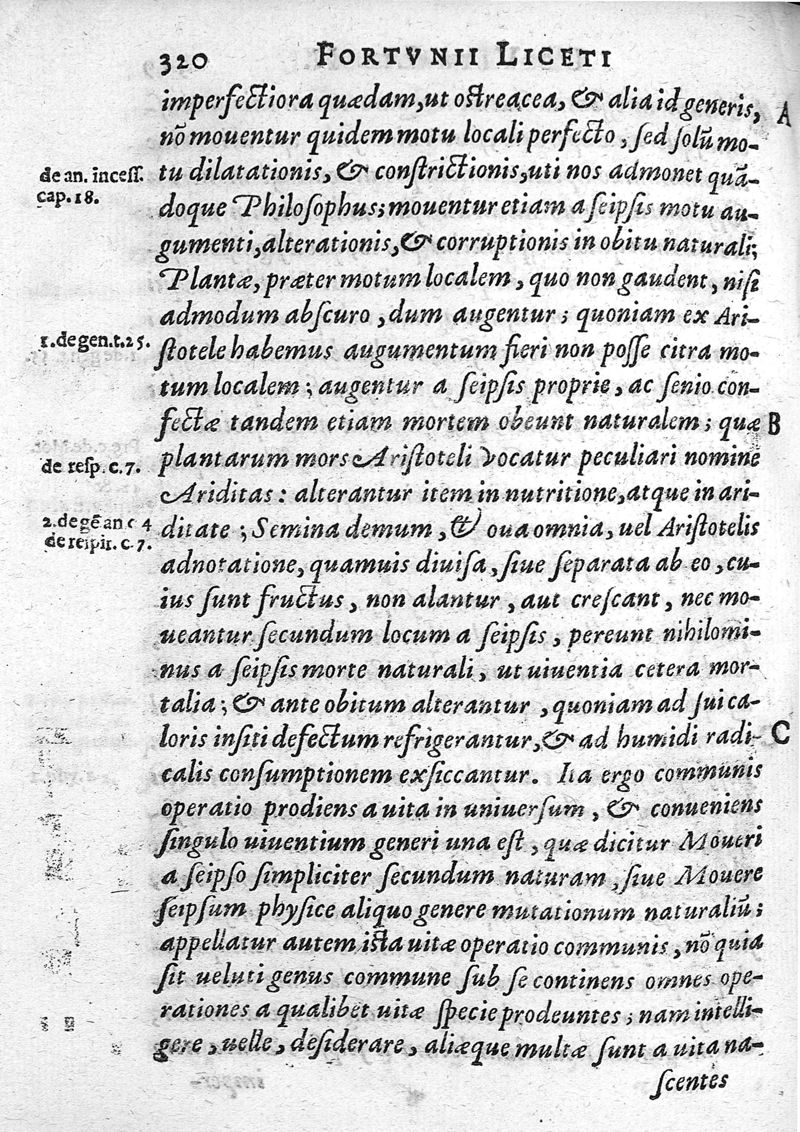 320 FORTVNII LICETI
imperfectiora quædam, ut ostreacea, & alia id generis, A
nō mouentur quidem motu locali perfecto, sed solū mo-
de an. incess. tu dilatationis, & constrictionis, uti nos admonet quā-
cap. 18. doque Philosophus; mouentur etiam a seipsis motu au-
gumenti, alterationis, & corruptionis in obitu naturali;
Plantæ, præter motum localem, quo non gaudent, nisi
admodum abscuro, dum augentur; quoniam ex Ari-
1. de gen. t. 25. stotele habemus augumentum fieri non posse citra mo-
tum localem; augentur a seipsis proprie, ac senio con-
fectæ tandem etiam mortem obeunt naturalem; quæ B
de resp. c. 7. plantarum mors Aristoteli vocatur peculiari nomine
Ariditas: alterantur item in nutritione, atque in ari-
2. de gē an c 4 ditate; Semina demum, & oua omnia, uel Aristotelis
de respir. c. 7. adnotatione, quamuis diuisa, siue separata ab eo, cu-
ius sunt fructus, non alantur, aut crescant, nec mo-
ueantur secundum locum a seipsis, pereunt nihilomi-
nus a seipsis morte naturali, ut uiuentia cetera mor-
talia; & ante obitum alterantur, quoniam ad sui ca-
loris insiti defectum refrigerantur, & ad humidi radi- C
calis consumptionem exsiccantur. Ita ergo communis
operatio prodiens a uita in uniuersum, & conueniens
singulo uiuentium generi una est, quæ dicitur Moueri
a seipso simpliciter secundum naturam, siue Mouere
seipsum physice aliquo genere mutationum naturaliū;
appellatur autem ista uitæ operatio communis, nō quia
sit ueluti genus commune sub se continens omnes ope-
rationes a qualibet uitæ specie prodeuntes; nam intelli-
gere, uelle, desiderare, aliæque multæ sunt a uita na-
scentes